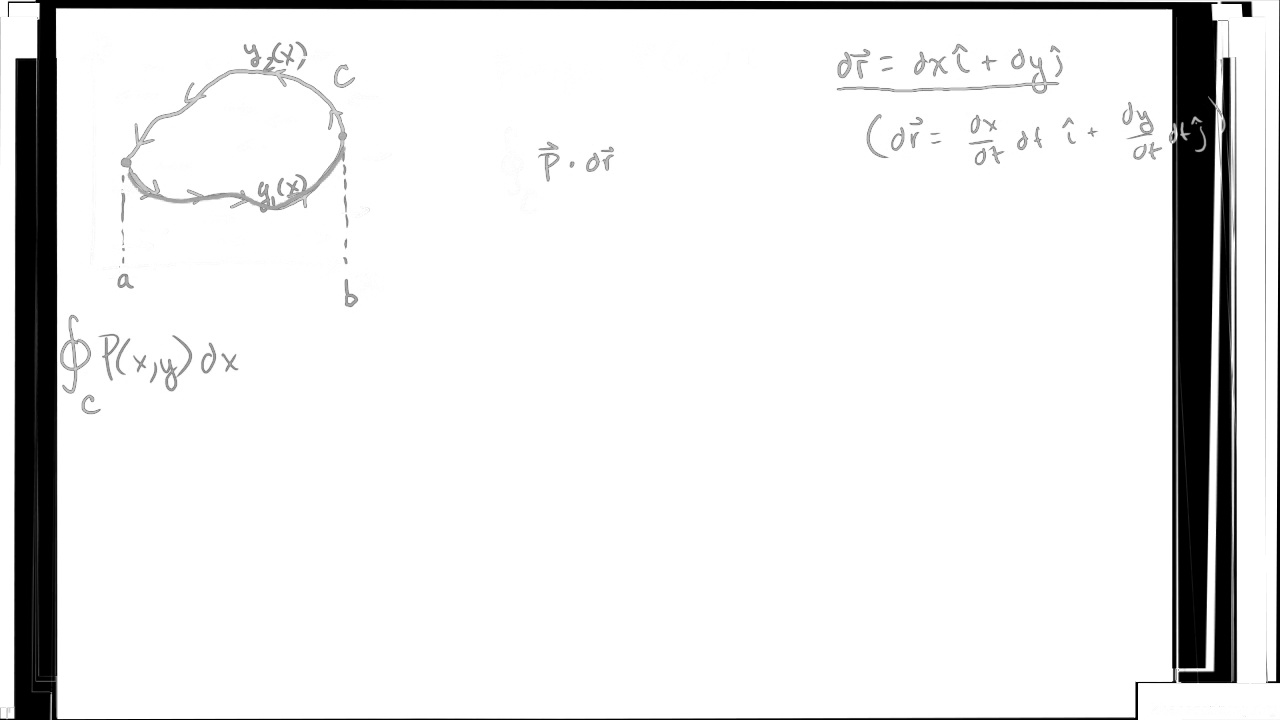 y₂(x)
C
y₁(x)
a
b
∮ P(x,y) dx
C
P⃗ · dr⃗
dr⃗ = dx î + dy ĵ
(dr⃗ = dx/dt dt î + dy/dt dt ĵ)